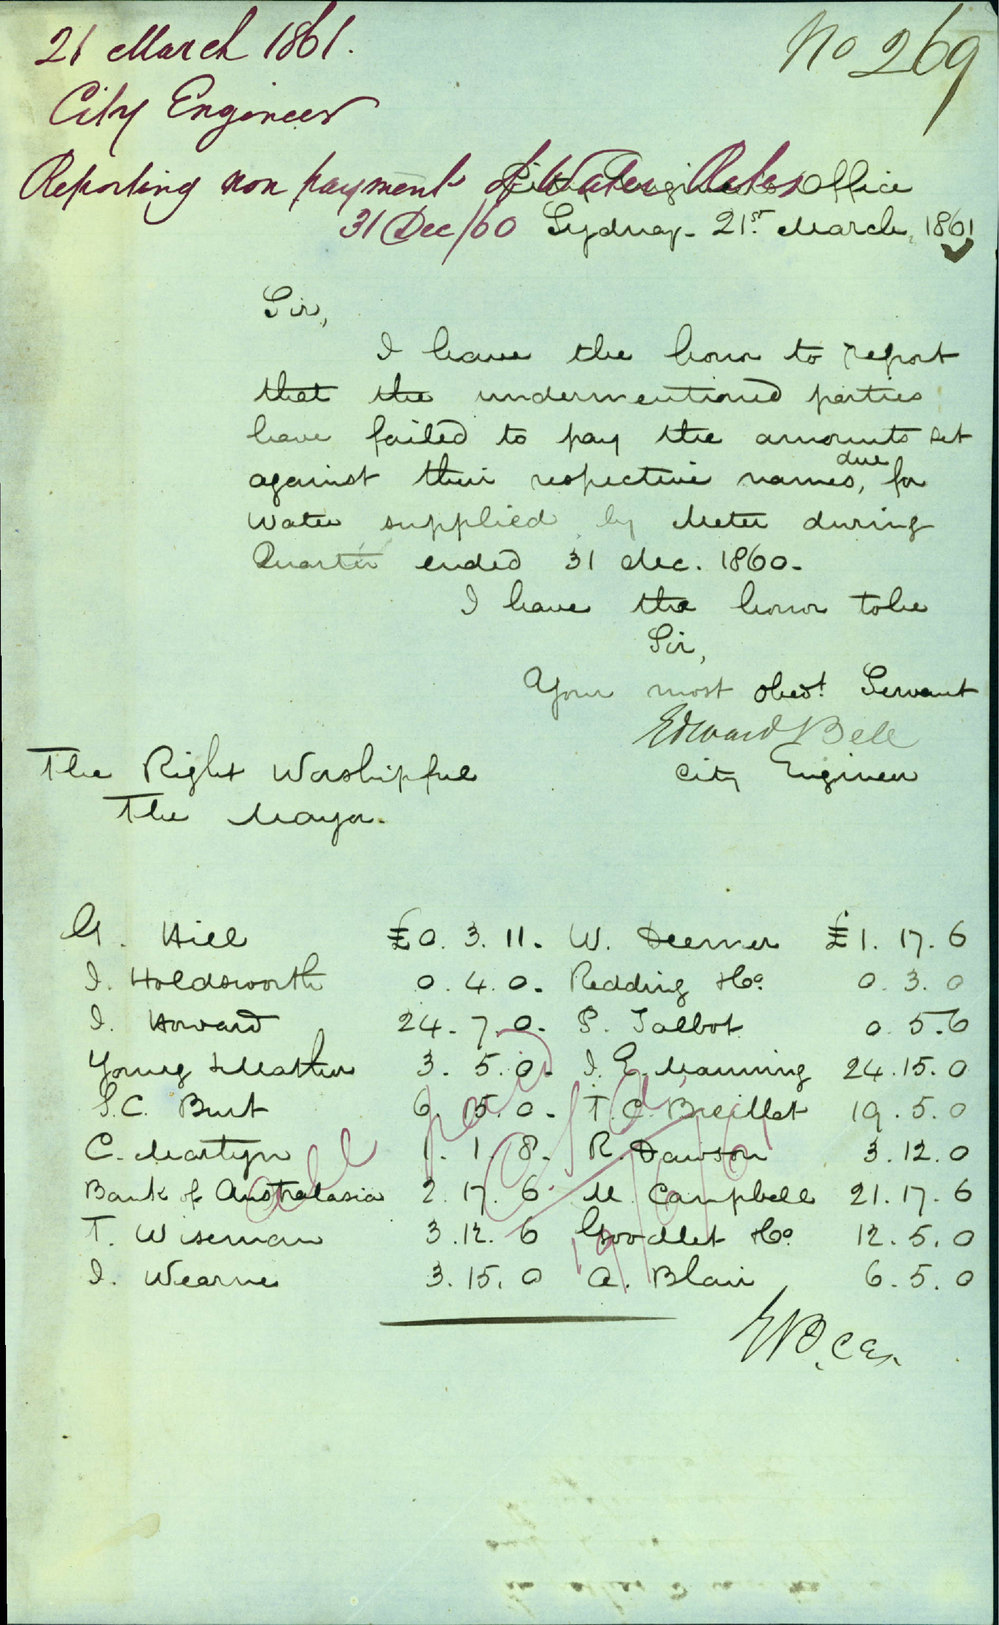 21 March 1861.
No 269
City Engineer
Reporting non payment of Water Rates
31 Dec/60
City Engineer's Office
Sydney - 21st March, 1861
Sir,
I have the honor to report
that the undermentioned parties
have failed to pay the amounts set
against their respective names, due for
Water supplied by Meter during
Quarter ended 31 Dec. 1860.
I have the honor to be
Sir,
Your most obedt. Servant
Edward Bell
City Engineer
The Right Worshipful
The Mayor.
G. Hill £0. 3. 11. W. Deemer £1. 17. 6
I. Holdsworth 0. 4. 0. Redding & Co. 0. 3. 0
I. Howard 24. 7. 0. P. Talbot 0. 5. 6
Young & Mather 3. 5. 0. I. E. Manning 24. 15. 0
S.C. Burt 6 15. 0. T. C. Breillat 19. 5. 0
C. Martyn 1. 1. 8. R. Dawson 3. 12. 0
Bank of Australasia 2. 17. 6. M. Campbell 21. 17. 6
T. Wiseman 3. 12. 6 Goodlet & Co. 12. 5. 0
I. Wearne 3. 15. 0 A. Blair 6. 5. 0
all paid
EB. CE.